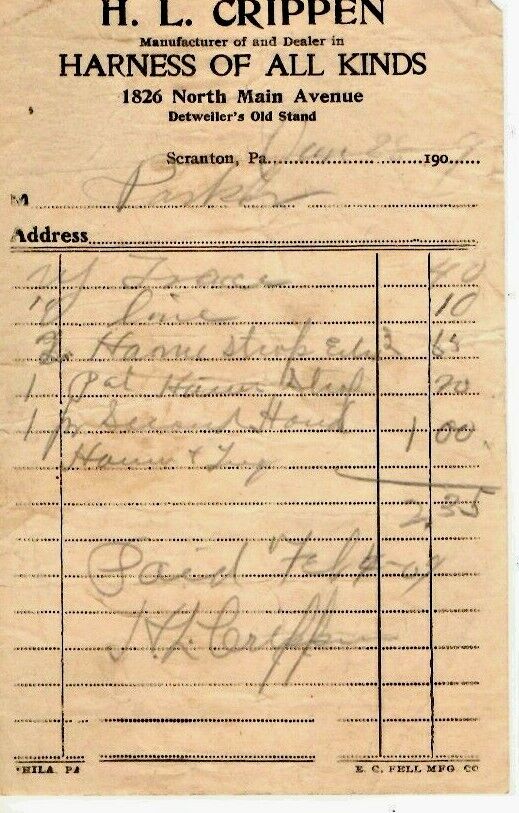 H. L. CRIPPEN
Manufacturer of and Dealer in
HARNESS OF ALL KINDS
1826 North Main Avenue
Detweiler's Old Stand
Scranton, Pa. Jan 190 9
M Parker
Address
Trace 40
line 10
2 Hame Strap 65
1 Pat Hame Strap 20
1 pr Second Hand 1 00
Hame & Tug
2,35
Paid Feb 4-09
H. L. Crippen
PHILA. PA E. C. FELL MFG. CO